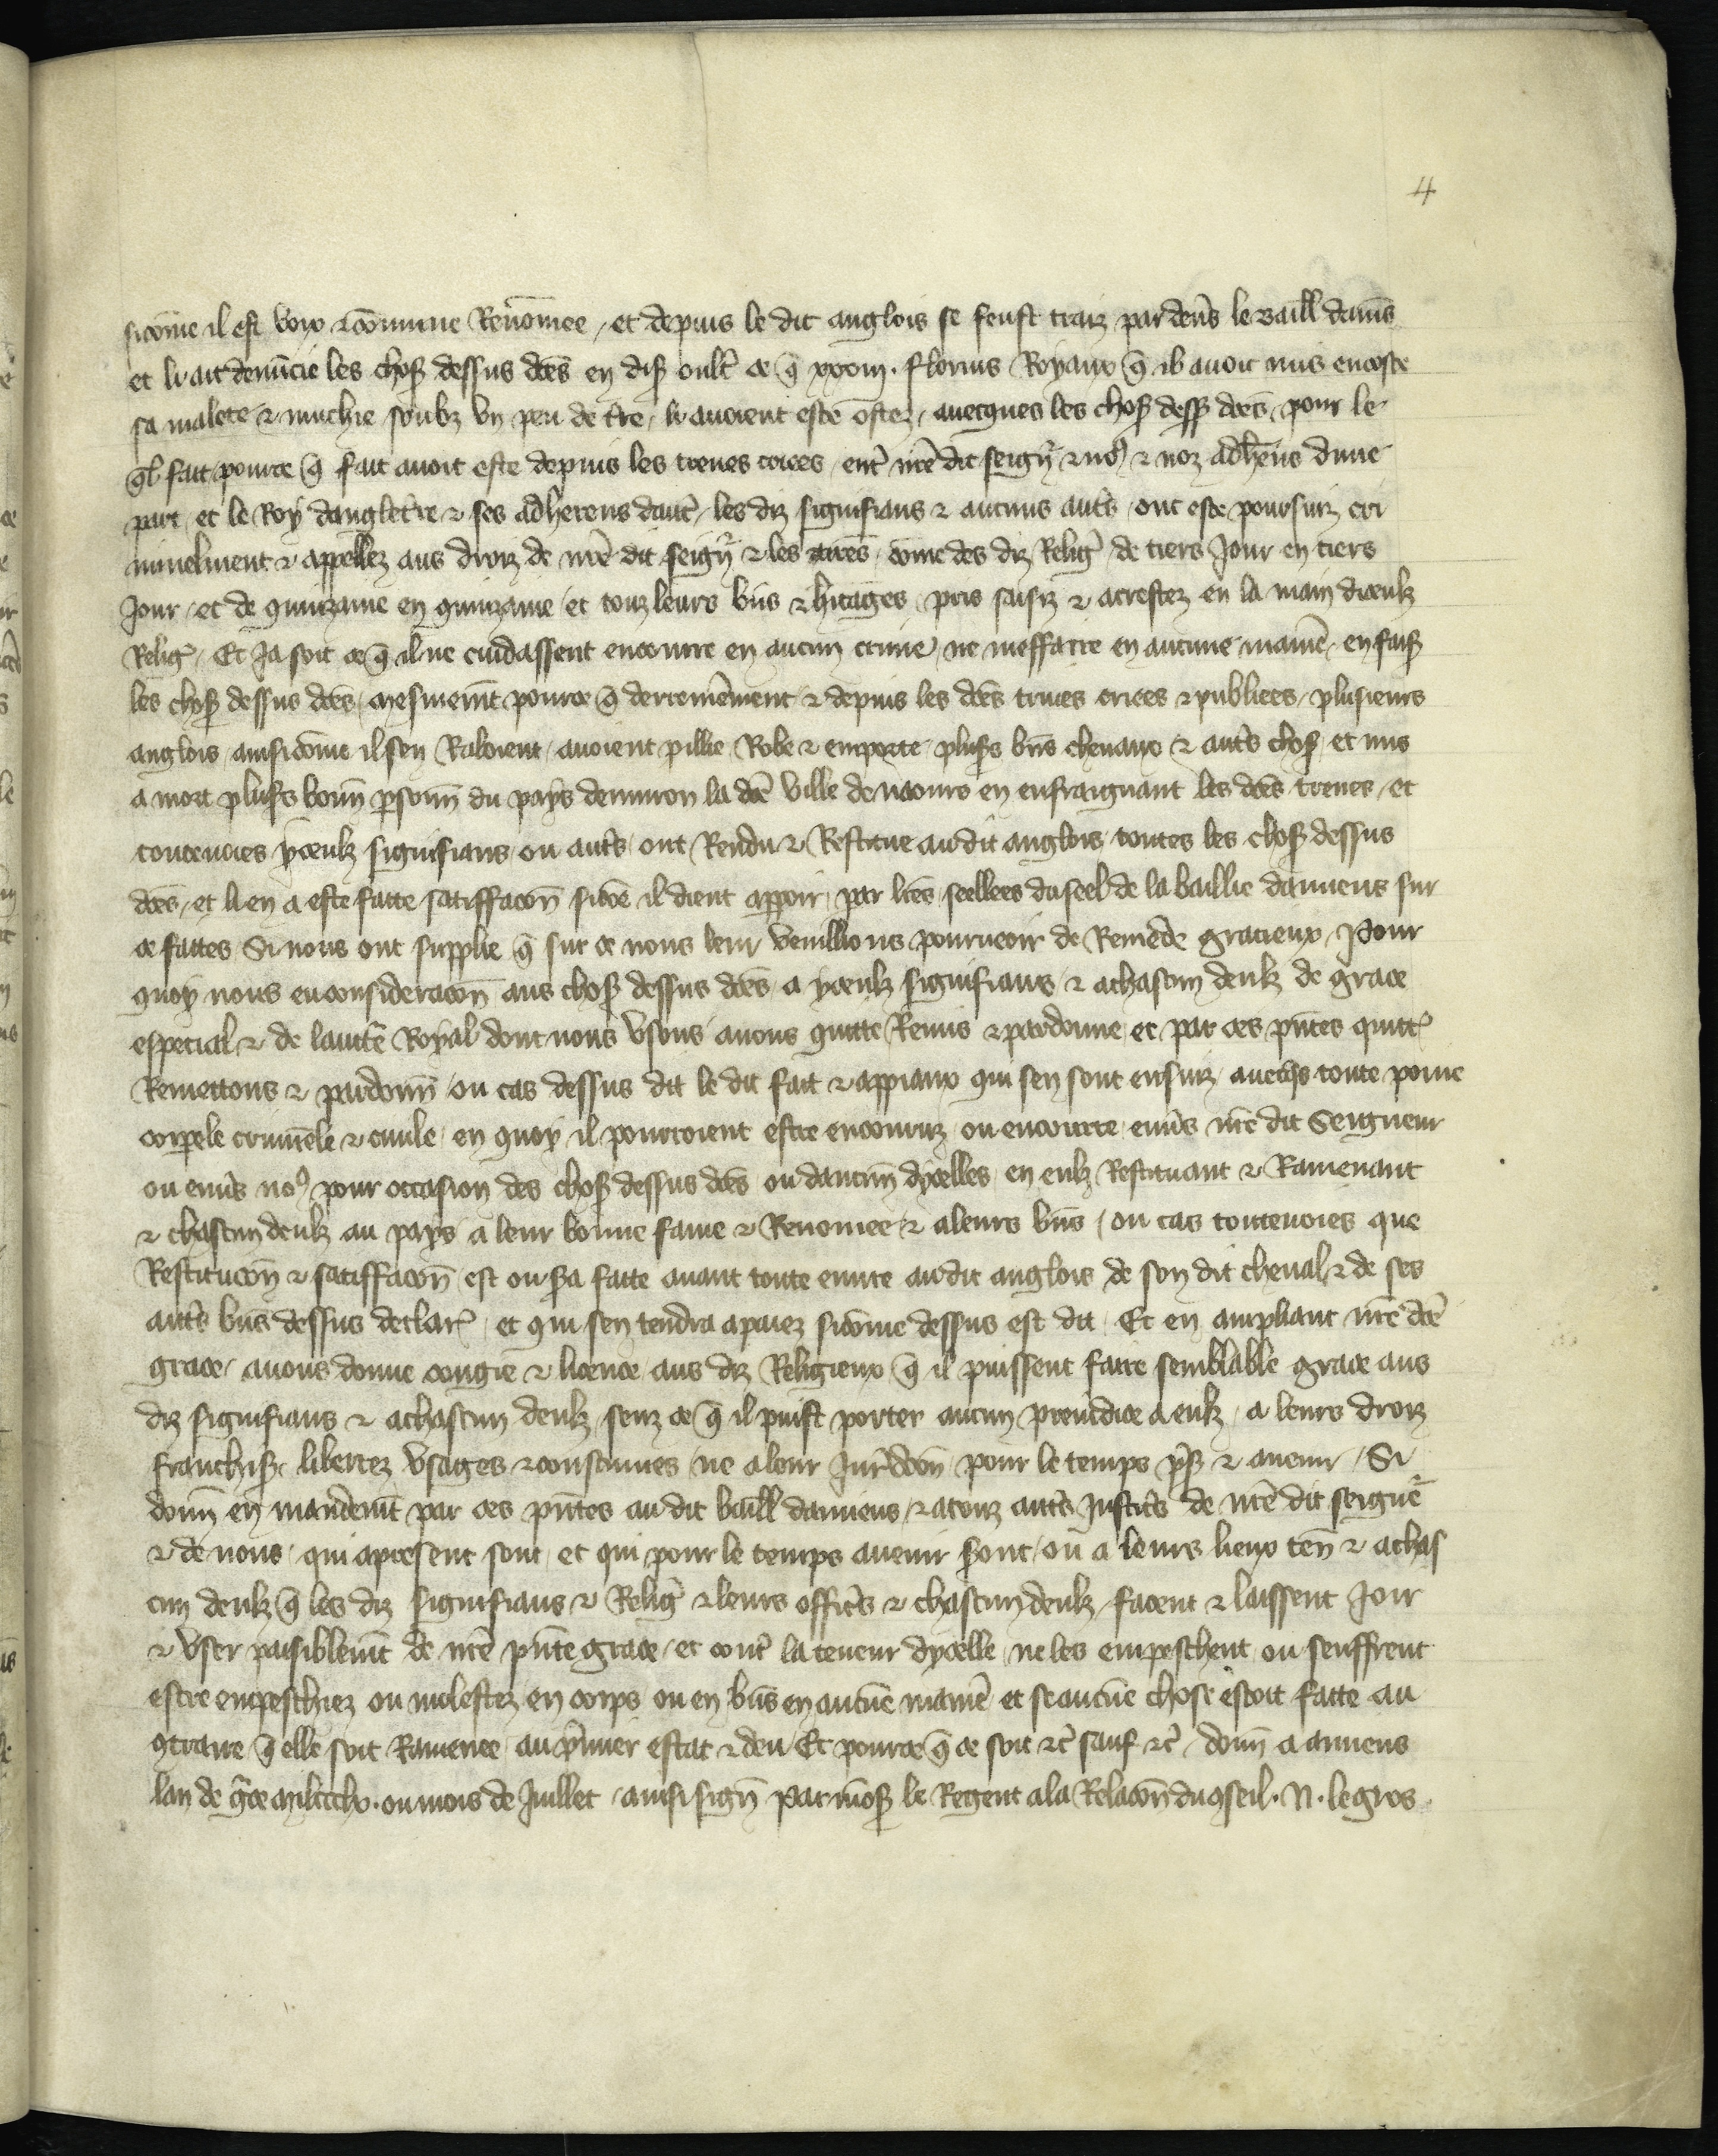 4
sicōme il est voix & cōmune Renōmee, et depuis le dit anglois se feust traiz par deūs le Baill damiēs
et li ait denūcie les chos dessus dc̄es en dis̄ oult̄ ce q̄ xxxiii. florins Royaux q̄ il avoit mis encoste
sa malete & muchie soubz un peu de tr̄e, li avoient este ostez, avecques les chos̄ dess̄ dc̄es, pour le
q̄l fait pource q̄ fait avoit este depuis les treues criees, ent̄ nr̄e dit seign̄ & noꝰ & noz adhr̄ens dune
part, et le Roy dangletr̄e & ses adherens daut̄, les diz signifians & aucuns aut̄s, ont este poursuiz cri
minelment & appellez aus droiz de nr̄e dit seign̄ & les aires, cōme des diz Reliḡ de tiers Jour en tiers
Jour, et de quinzaine en quinzaine, et touz leurs bn̄s & hitages, pris saisiz & arrestez en la main diceulz
Reliḡ. Et Ja soit ce q̄ il ne cuidassent encourre en aucun crime, ne meffaire en aucune maniē, en fais̄
les chos̄ dessus dc̄es, mesmemt̄ pource q̄ derreniēment & depuis les dc̄es trives criees & publiees, plusieurs
anglois, ainsicōme il sen Raloient, avoient pillie, Robe & emporte plus̄s bn̄s chevaux & aut̄s chos̄, et mis
a mort plus̄s bonn̄ ꝑsonn̄ du pays denviron la dc̄e ville de en enfraignant les dc̄es treves, et
toutevoies yceulz signifians, ou aut̄s, ont Rendu & Restitue audit anglois, toutes les chos̄ dessus
dc̄es, et li en a este faite satisfaccōn sicōe il dient apparoir, par lr̄es seellees du seel de la baillie damiens sur
ce faites, Si nous ont supplie q̄ sur ce nous leur veuillions pourveoir de Remede gracieux, Pour
quoy nous en consideracōn aus chos̄ dessus dc̄es, a yceulz signifians, & a chascun deulz de grace
especial & de lautē Royal dont nous usons, avons quitte Remis & pardonne, et par ces pn̄tes quitt̄
Remettons & pardonn̄, ou cas dessus dit le dit fait & appiaux qui sen sont ensuiz, avecq̄s toute poine
corporele criminele & civile, en quoy il pourroient estre encouruz, ou encourre, env̄s nr̄e dit Seigneur
ou env̄s noꝰ, pour occasion des chos̄ dessus dc̄es ou daucun̄ dycelles, en eulz Restituant & Ramenant
& chascun deulz au pays, a leur bonne fame & Renomee, & a leurs bn̄s, ou cas toutevoies que
Restitucōn & satisfaccōn est ou s̄a faite avant toute euvre audit anglois de son dit cheval, & de ses
aut̄s bn̄s dessus declar̄, et qui sen tendra apaiez sicōme dessus est dit, Et en ampliant nr̄e dc̄e
grace, avons donne congie & licence, aus diz Religieux q̄ il puissent faire semblable grace aus
diz signifians & a chascun deulz, senz ce q̄ il puist porter aucun preiudice a eulz, a leurs droiz
franchis̄, libertez usages & coustumes, ne a leur Jur̄dcōn, pour le temps p̄s̄ & avenir, Si
donn̄ en mandemt̄ par ces pn̄tes au dit baill damiens, & a touz aut̄s Justic̄s de nr̄e dit seigneʳ
& de nous, qui apresent sont, et qui pour le temps avenir s̄ont, ou a leurs lieux ten̄ & a chas
cun deulz q̄ les diz signifians & Reliḡ & leurs offic̄s & chascun deulz, facent & laissent Joir
& user paisiblemt̄ de nr̄e pn̄te grace, et cont̄ la teneur dycelle, ne les empeschent, ou seuffrent
estre empeschiez ou molestez, en corps ou en bn̄s en aucūe maniē, et se aucūe chose estoit faite au
ꝯtraire, q̄ elle soit Ramenee au p̄mier estat & deu, Et pource q̄ ce soit &c̄ sauf &c̄, donn̄ a amiens
lan de gr̄ce mil ccclx. ou mois de Juillet, ainsi sign̄ Par mōs̄ le Regent a la Relacōn du ꝯseil. N. le gros